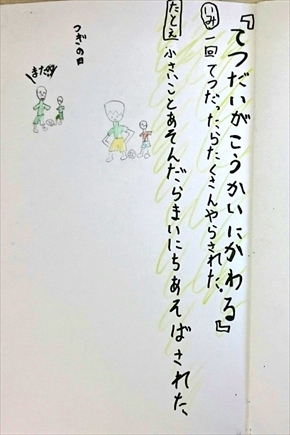 『てつだいがこうかいにかわる』
いみ 一回てつだったらたくさんやらされた。
たとえ 小さいことあそんだらまいにちあそばされた、
つぎの日